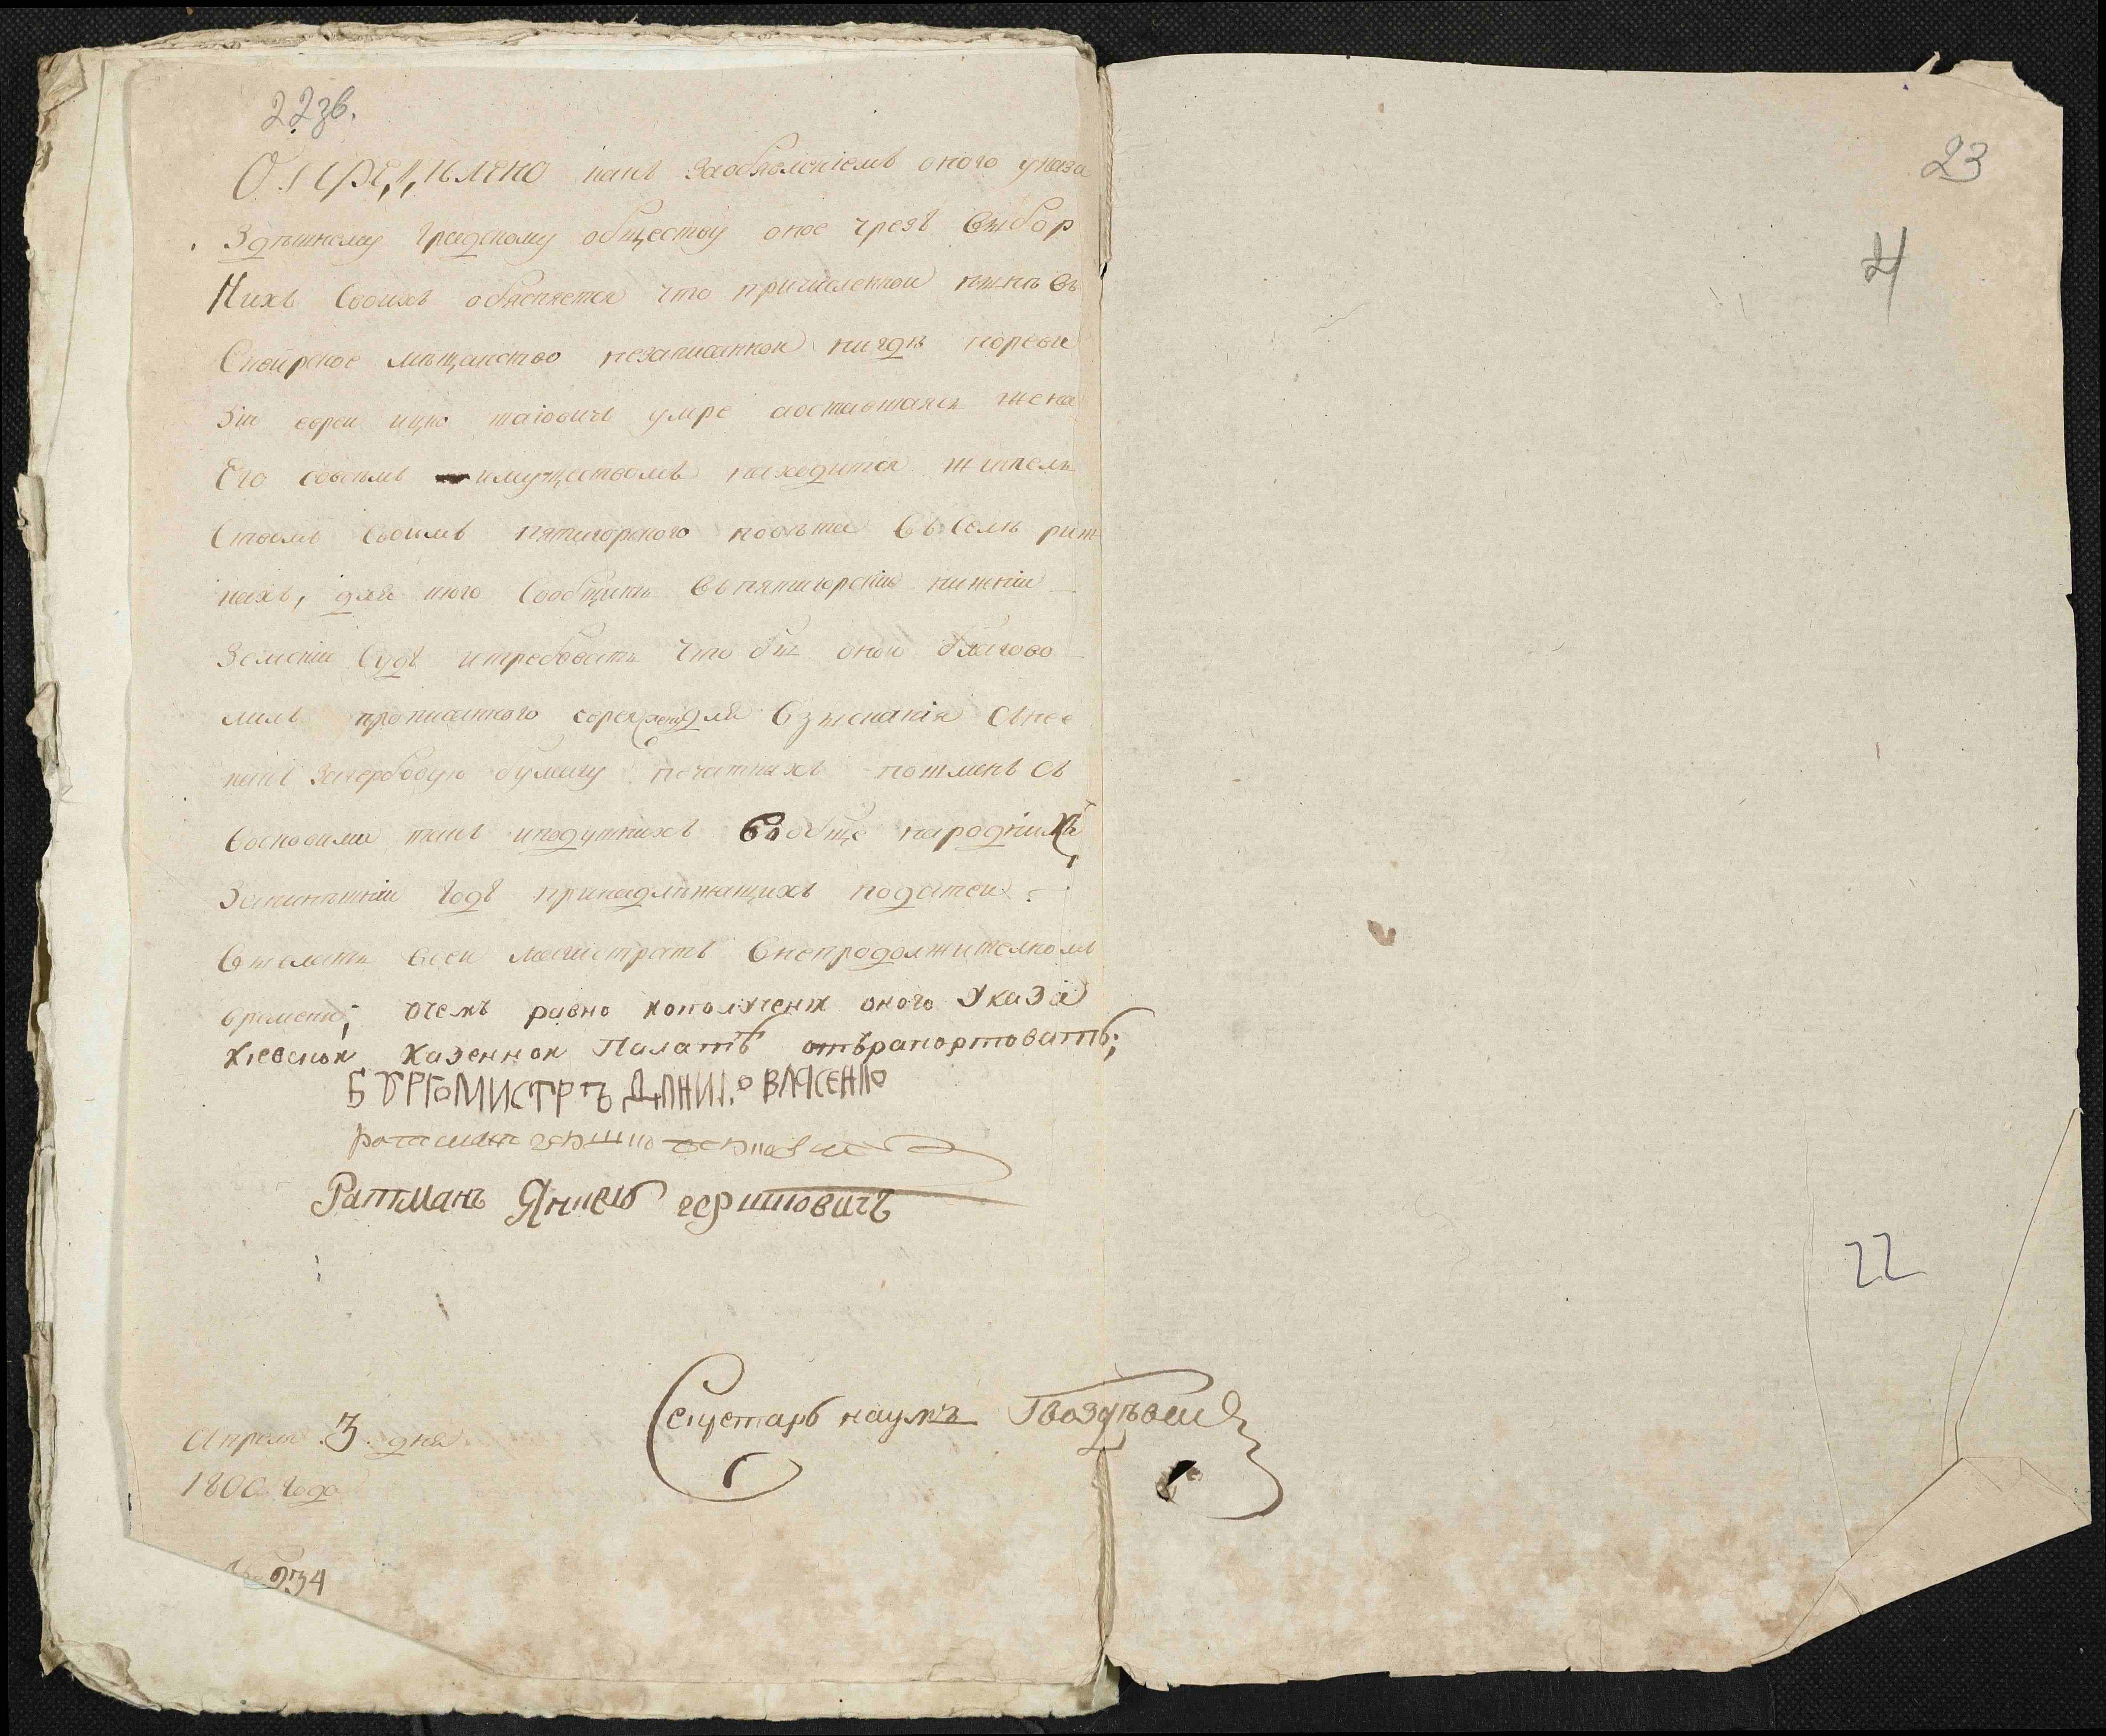 22зв.
Определено какъ заобявленіемъ оного указа
Здѣшнему градскому обществу оное чрезъ выбор
Нихъ своихъ обясняется что причисленной нынѣ въ
Сквирское мѣщанство незаписанной нигдѣ пореви
Зіи еврей ицко умре аоставшаясь жена
Его совсѣмъ имуществомъ находится жител
Ствомъ своимъ пятигорского повѣта въ селѣ
нахъ, для чего Сообщить въ пятигорскій нижній
Земскій Судъ итребовать что бы оной благово
лилъ прописанного еврея жену для взысканія снее
какъ загербовую бумагу печатныхъ пошленъ съ
такъ иподушныхъ вообще народнихъ
Занинѣшній годъ принадлѣжащихъ податей
Выслать всей магистратъ внепродолжителномъ
времени; очемъ равно ополучени оного Указа
Кіевской Казенной Палатѣ отърапортовать;
БУРГОМИСТРЪ ДАНИЛО ВЛАСЕНКО
ратман
Ратманъ гершковичъ
Секретарь наумъ
Апреля 3. дня
1800 года
№ 934
23
21
22